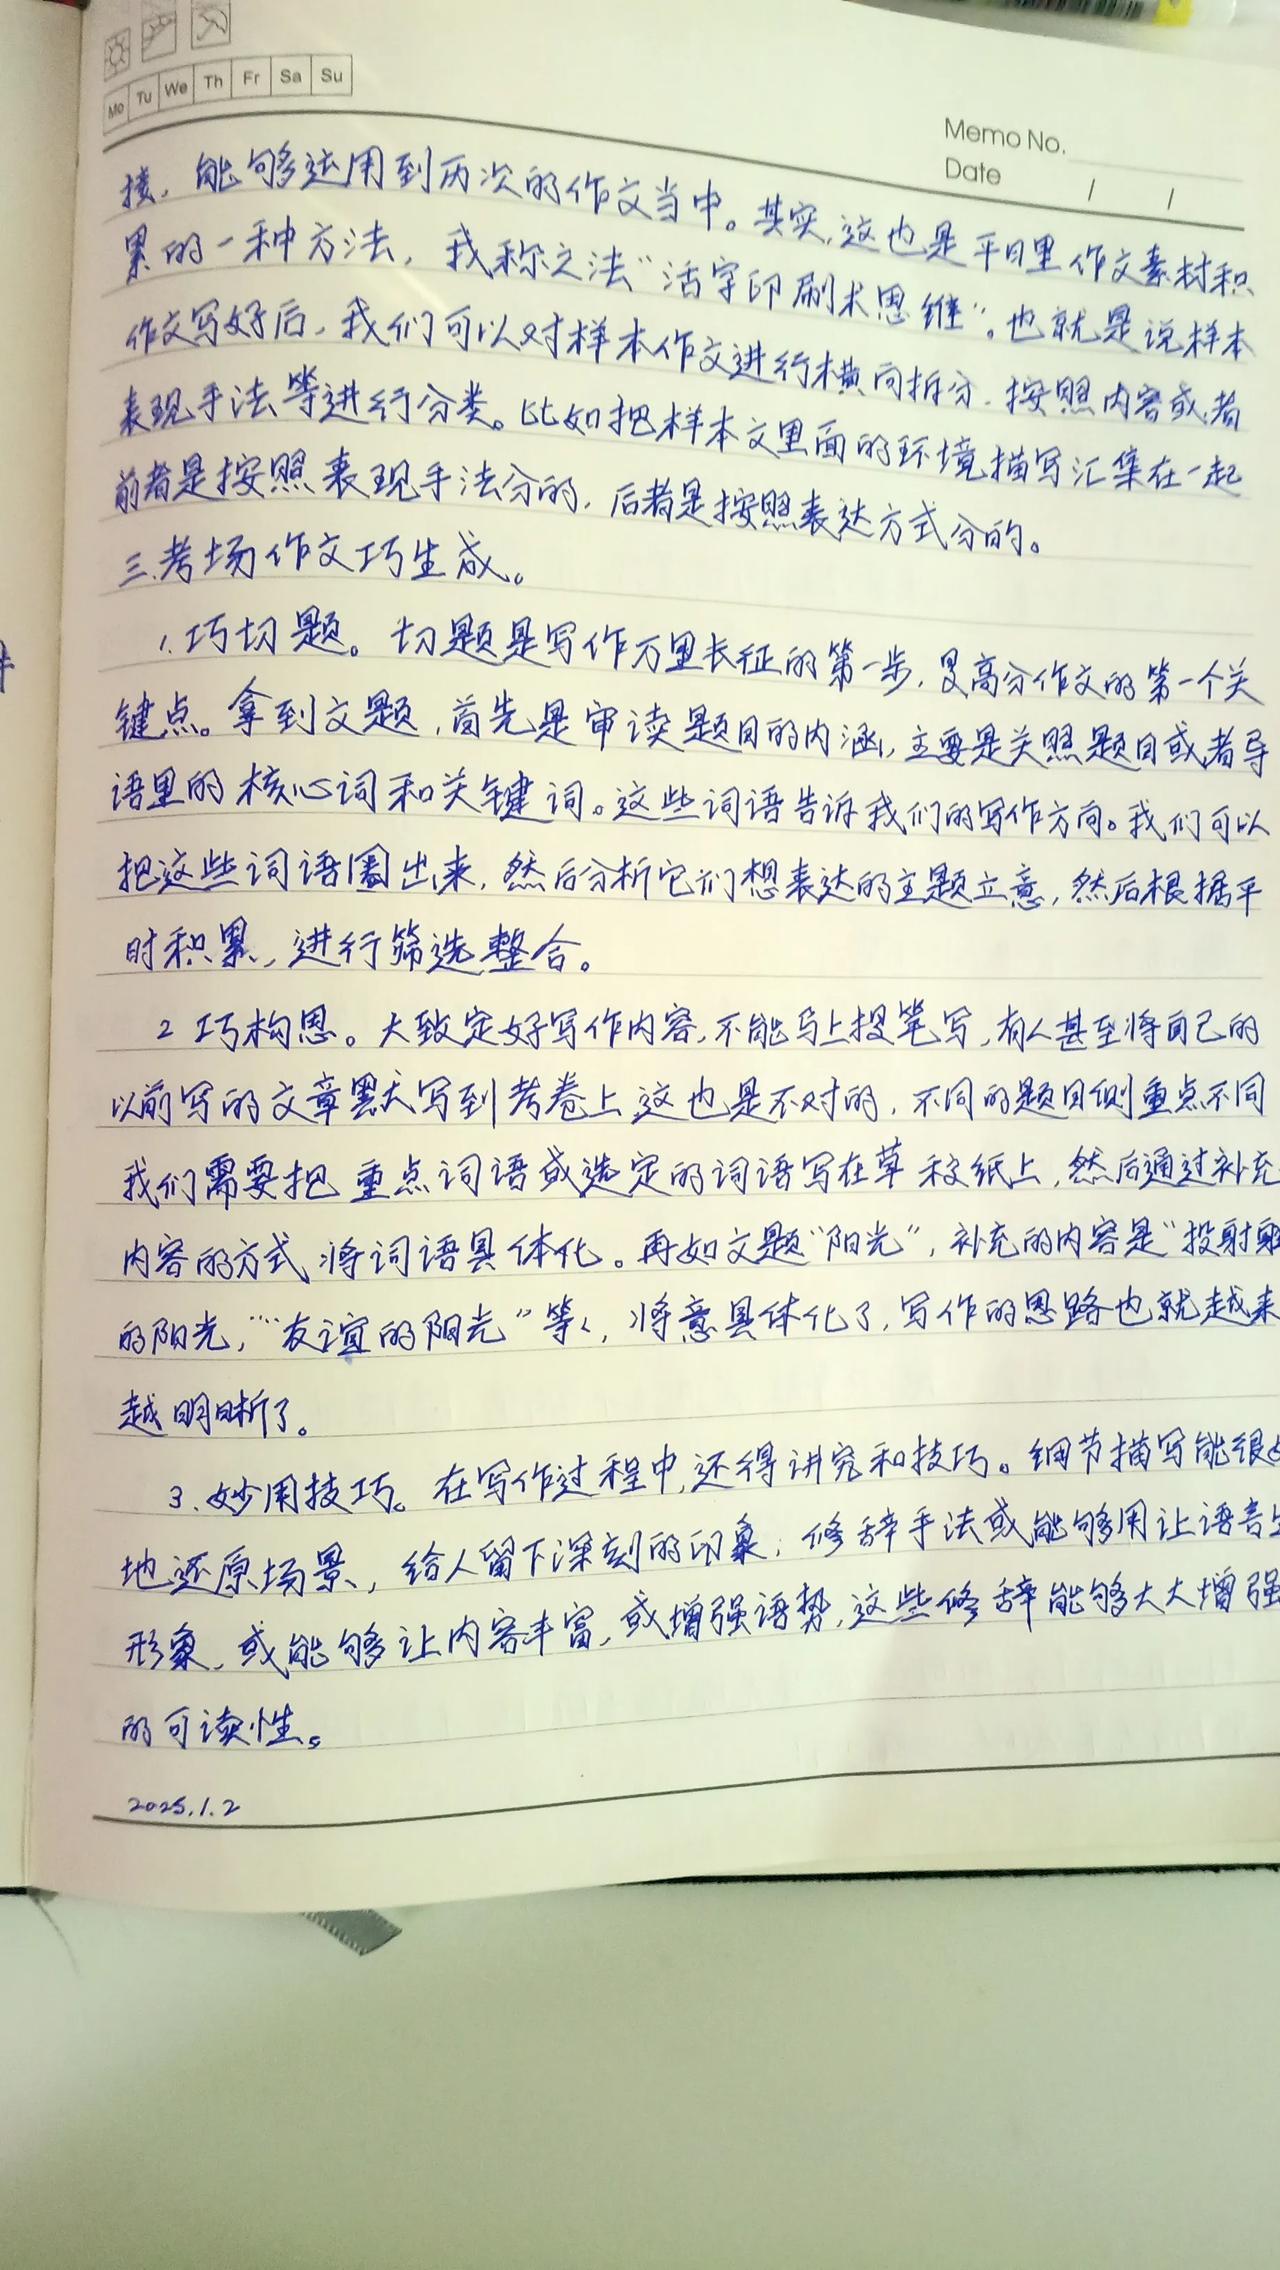 Mo Tu We Th Fr Sa Su
Memo No.
Date / /
接,能够运用到两次的作文当中。其实,这也是平日里作文素材积
累的一种方法,我称之法“活字印刷术思维”。也就是说样本
作文写好后,我们可以对样本作文进行横向拆分,按照内容或者
表现手法等进行分类。比如把样本文里面的环境描写汇集在一起
前者是按照表现手法分的,后者是按照表达方式分的。
三.考场作文巧生成。
1.巧切题。切题是写作万里长征的第一步,是高分作文的第一个关
键点。拿到文题,首先是审读题目的内涵,主要是关照题目或者导
语里的核心词和关键词。这些词语告诉我们的写作方向。我们可以
把这些词语圈出来,然后分析它们想表达的主题立意,然后根据平
时积累,进行筛选整合。
2 巧构思。大致定好写作内容,不能马上提笔写,有人甚至将自己的
以前写的文章默写到考卷上,这也是不对的,不同的题目侧重点不同
我们需要把重点词语或选定的词语写在草稿纸上,然后通过补充
内容的方式,将词语具体化。再如文题“阳光”,补充的内容是“投射
的阳光,”“友谊的阳光”等,将意具体化了,写作的思路也就越来
越明晰了。
3.妙用技巧。在写作过程中,还得讲究和技巧。细节描写能很
地还原场景,给人留下深刻的印象;修辞手法或能够用让语言
形象,或能够让内容丰富,或增强语势,这些修辞能够大大增强
的可读性。
2025.1.2